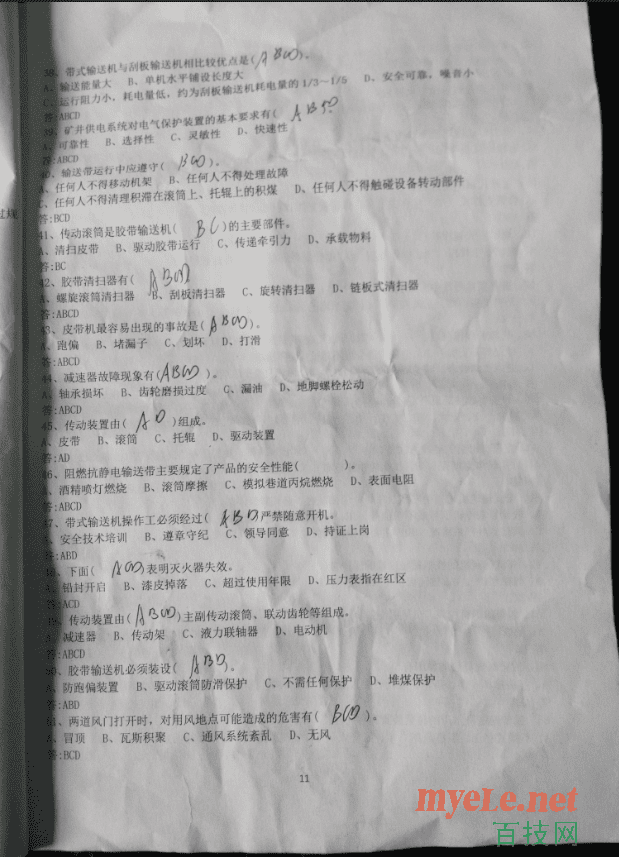 38、带式输送机与刮板输送机相比较优点是(ABCD)。
A、输送能量大 B、单机水平铺设长度大
C、运行阻力小,耗电量低,约为刮板输送机耗电量的1/3~1/5 D、安全可靠,噪音小
答:ABCD
39、矿井供电系统对电气保护装置的基本要求有(ABCD
A、可靠性 B、选择性 C、灵敏性 D、快速性
答:ABCD
40、输送带运行中应遵守(BCD)。
A、任何人不得移动机架 B、任何人不得处理故障
C、任何人不得清理积滞在滚筒上、托辊上的积煤 D、任何人不得触碰设备转动部件
过规
答:BCD
41、传动滚筒是胶带输送机(BC)的主要部件。
A、清扫皮带 B、驱动胶带运行 C、传递牵引力 D、承载物料
答:BC
42、胶带清扫器有(ABCD
A、螺旋滚筒清扫器 B、刮板清扫器 C、旋转清扫器 D、链板式清扫器
答:ABCD
43、皮带机最容易出现的事故是(ABCD)。
A、跑偏 B、堵漏子 C、划坏 D、打滑
答:ABCD
44、减速器故障现象有(ABCD)。
A、轴承损坏 B、齿轮磨损过度 C、漏油 D、地脚螺栓松动
答:ABCD
45、传动装置由(AD)组成。
A、皮带 B、滚筒 C、托辊 D、驱动装置
答:AD
46、阻燃抗静电输送带主要规定了产品的安全性能( )。
A、酒精喷灯燃烧 B、滚筒摩擦 C、模拟巷道丙烷燃烧 D、表面电阻
答:ABCD
47、带式输送机操作工必须经过(ABD严禁随意开机。
A、安全技术培训 B、遵章守纪 C、领导同意 D、持证上岗
答:ABD
48、下面(ACD)表明灭火器失效。
A、铅封开启 B、漆皮掉落 C、超过使用年限 D、压力表指在红区
答:ACD
49、传动装置由(ABCD)主副传动滚筒、联动齿轮等组成。
A、减速器 B、传动架 C、液力联轴器 D、电动机
答:ABCD
50、胶带输送机必须装设(ABD)。
A、防跑偏装置 B、驱动滚筒防滑保护 C、不需任何保护 D、堆煤保护
答:ABD
51、两道风门打开时,对用风地点可能造成的危害有(BCD)。
A、冒顶 B、瓦斯积聚 C、通风系统紊乱 D、无风
答:BCD
11
myeLe.net
百技网